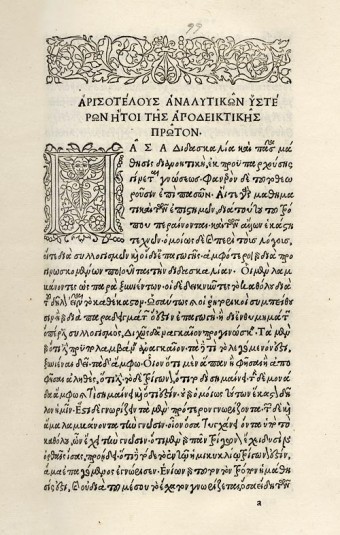 99
ΑΡΙΣΟΤΕΛΟΥΣ ΑΝΑΛΥΤΙΚΩΝ ΥΣΤΕ
ΡΩΝ ΗΤΟΙ ΤΗΣ ΑΠΟΔΕΙΚΤΙΚΗΣ
ΠΡΩΤΟΝ·
ΠΑΣΑ διδασκαλία καὶ πᾶσα μά
θησις διανοητικὴ, ἐκ προϋπαρχούσης
γίνεται γνώσεως. Φανερὸν δὲ τοῦτο θεω
ροῦσιν ἐπὶ πασῶν. Αἵ τε γὰρ μαθημα
τικαὶ τῶν ἐπιστημῶν, διὰ τούτου τοῦ τρό
που περαίνονται. καὶ τῶν ἄλλων ἑκάστη
τεχνῶν. ὁμοίως δὲ καὶ περὶ τοὺς λόγους,
οἵ τε διὰ συλλογισμῶν, καὶ οἱ δι' ἐπαγωγῆς. ἀμφότεροι γὰρ διὰ προ
γινωσκομένων ποιοῦνται τὴν διδασκαλίαν. Οἱ μὲν λαμ
βάνοντες ὡς παρὰ ξυνιέντων. οἱ δὲ δεικνύντες τὸ καθόλου διὰ
τοῦ δῆλον εἶναι τὸ καθέκαστον. Ὡσαύτως καὶ οἱ ῥητορικοὶ συμπείθου
σιν. ἢ γὰρ διὰ παραδειγμάτων, ὅ ἐστιν ἐπαγωγὴ. ἢ δι' ἐνθυμημάτων
ὅπερ ἐστὶ συλλογισμὸς. Διχῶς δ' ἀναγκαῖον προγινώσκειν. Τὰ μὲν
γὰρ ὅτι ἔστι προϋπολαμβάνειν ἀναγκαῖον. τὰ δὲ τί τὸ λεγόμενόν ἐστι,
ξυνιέναι δεῖ. τὰ δ' ἄμφω. Οἷον ὅτι μὲν ἅπαν ἢ φῆσαι ἢ ἀπο
φῆσαι ἀληθὲς, ὅτι ἔστι. τὸ δὲ τρίγωνον, ὅτι τοδὶ σημαίνει. τὴν δὲ μονά
δα ἄμφω, καὶ τί σημαίνει, καὶ ὅτι ἔστιν. οὐ γὰρ ὁμοίως τούτων ἕκαστον δῆ
λον ἡμῖν. Ἔστι δὲ γνωρίζειν τὰ μὲν πρότερον γνωρίζοντα. τῶν δὲ καὶ
ἅμα λαμβάνοντα τὴν γνῶσιν. οἷον ὅσα τυγχάνει ὄντα ὑπὸ τὸ
καθόλου, ὧν ἔχει τὴν γνῶσιν. ὅτι μὲν γὰρ πᾶν τρίγωνον ἔχει δυσὶν
ὀρθαῖς ἴσας, προῄδει. ὅτι δὲ τόδε τὸ ἐν τῷ ἡμικυκλίῳ τρίγωνόν ἐστιν,
ἅμα ἐπαγόμενος ἐγνώρισεν. Ἐνίων γὰρ τοῦτον τὸν τρόπον ἡ μάθη
σίς ἐστι. Καὶ οὐ διὰ τοῦ μέσου τὸ ἔσχατον γνωρίζεται, ὅσα ἤδη τῶν
a